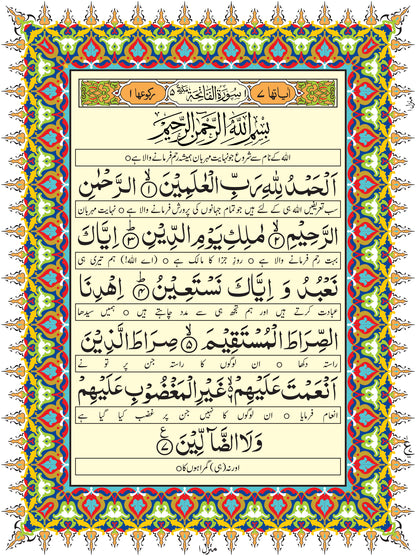 اٰیاتھا ۷ سُوْرَۃُ الْفَاتِحَۃِ مَکِّیَّۃٌ ۵ رکوعھا ۱
بِسْمِ اللّٰهِ الرَّحْمٰنِ الرَّحِیْمِ
اللہ کے نام سے شروع جو نہایت مہربان ہمیشہ رحم فرمانے والا ہے ○
اَلْحَمْدُ لِلّٰهِ رَبِّ الْعٰلَمِیْنَ ۱ الرَّحْمٰنِ
سب تعریفیں اللہ ہی کے لئے ہیں جو تمام جہانوں کی پرورش فرمانے والا ہے ○ نہایت مہربان
الرَّحِیْمِ ۲ مٰلِكِ یَوْمِ الدِّیْنِ ۳ اِیَّاكَ
بہت رحم فرمانے والا ہے ○ روزِ جزا کا مالک ہے ○ (اے اللہ!) ہم تیری ہی
نَعْبُدُ وَ اِیَّاكَ نَسْتَعِیْنُ ۴ اِهْدِنَا
عبادت کرتے ہیں اور ہم تجھ ہی سے مدد چاہتے ہیں ○ ہمیں سیدھا
الصِّرَاطَ الْمُسْتَقِیْمَ ۵ صِرَاطَ الَّذِیْنَ
راستہ دکھا ○ ان لوگوں کا راستہ جن پر تو نے
اَنْعَمْتَ عَلَیْهِمْ ۶ غَیْرِ الْمَغْضُوْبِ عَلَیْهِمْ
انعام فرمایا ○ ان لوگوں کا نہیں جن پر غضب کیا گیا ہے
وَلَا الضَّآلِّیْنَ ۷ ع
اور نہ (ہی) گمراہوں کا ○
منزل ۱